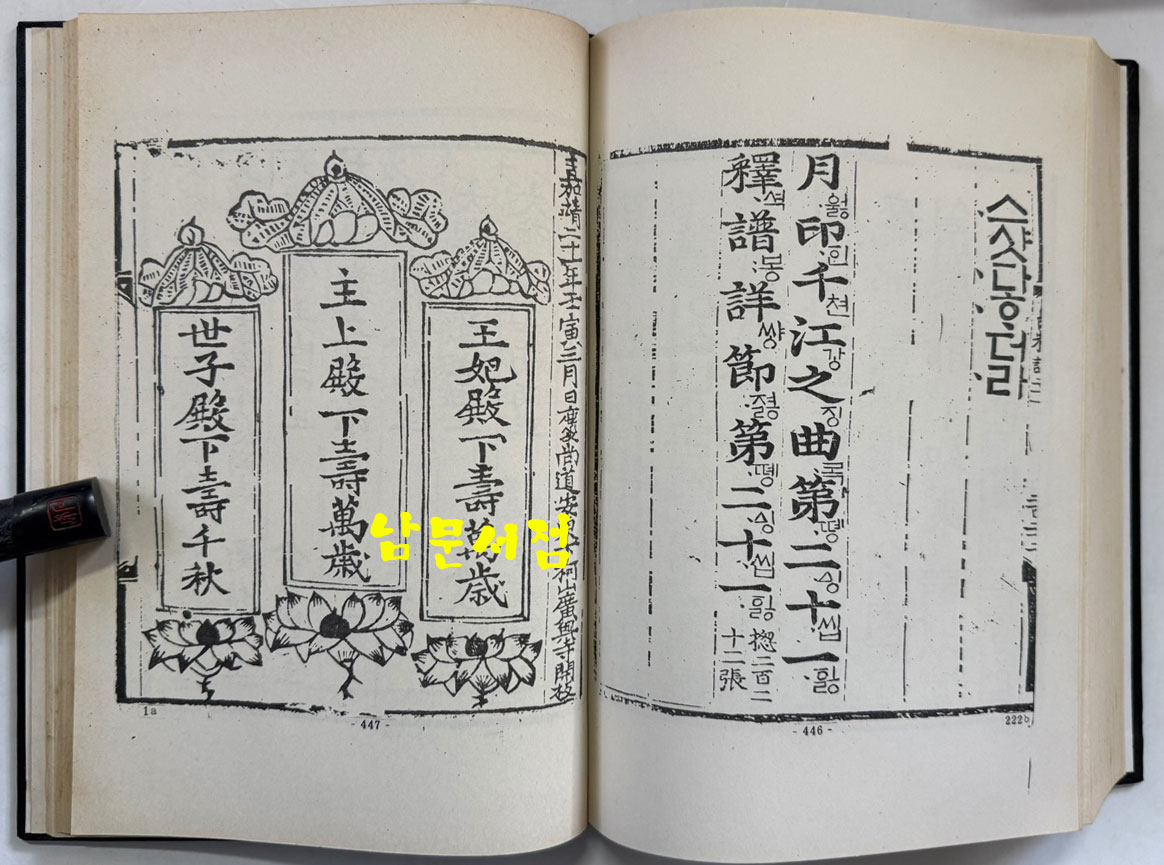 더라
月ᅌᅯᇙ印ᅙᅵᆫ千쳔江강之징曲콕第똉二ᅀᅵᆼ十씹一ᅙᅵᇙ
釋셕譜봉詳썅節졇第똉二ᅀᅵᆼ十씹一ᅙᅵᇙ
摠二百二
十二張
222b
- 446 -
嘉靖二十一年壬寅三月日慶尚道安 柯山廣興寺開板
王妃殿下壽萬歲
主上殿下壽萬歲
世子殿下壽千秋
1a
- 447 -
남문서점